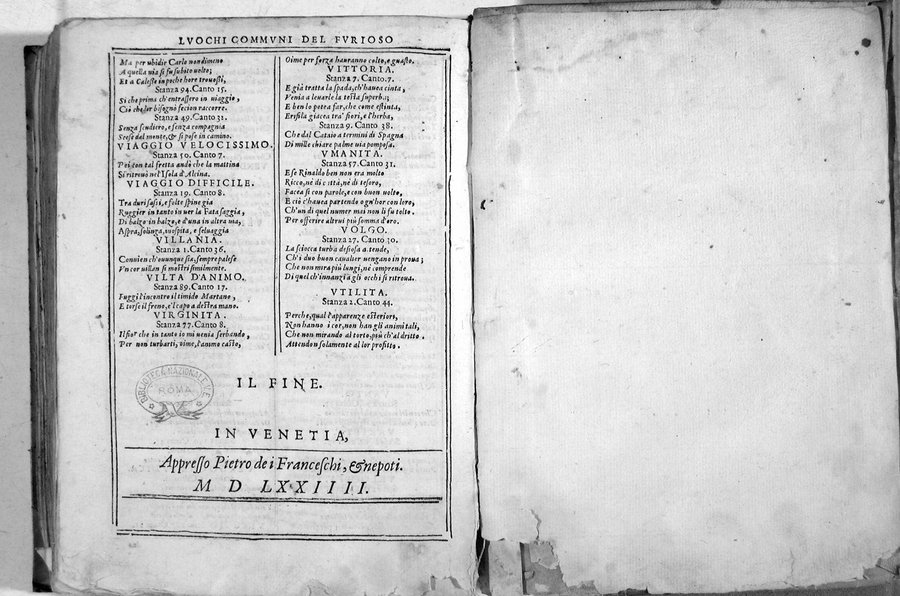 LVOCHI COMMVNI DEL FVRIOSO
Ma per ubidir Carlo nondimeno
A quella uia si fu subito uolto;
Et a Calesse in poche hore trouossi,
Stanza 94. Canto 15.
Si che prima ch'entrassero in uiaggio,
Ciò che lor bisognò fecion raccorre.
Stanza 49. Canto 31.
Senza scudiero, e senza compagnia
Scese dal monte, & si pose in camino.
VIAGGIO VELOCISSIMO.
Stanza 50. Canto 7.
Poi con tal fretta andò che la mattina
Si ritrouò nel'Isola d'Alcina.
VIAGGIO DIFFICILE.
Stanza 19. Canto 8.
Tra duri sassi, e folte spine gia
Ruggier in tanto in uer la Fata saggia,
Di balzo in balzo, e d'una in altra uia,
Aspra, solinga, inospita, e seluaggia
VILLANIA.
Stanza 1. Canto 36.
Conuien ch'ouunque sia, sempre palese
Vn cor uillan si mostri similmente.
VILTA D'ANIMO.
Stanza 89. Canto 17.
Fuggì l'incontro il timido Martano,
E torse il freno, e'l capo a destra mano.
VIRGINITA.
Stanza 77. Canto 8.
Il fior che in tanto io mi uenia serbando,
Per non turbarti, oime, l'animo casto,
Oime per forza hauranno colto, e guasto.
VITTORIA.
Stanza 7. Canto 7.
E già tratta la spada, ch'hauea cinta,
Venia a leuarle la testa superba;
E ben lo potea far, che come estinta,
Erifila giacea tra' fiori, e l'herba,
Stanza 9. Canto 38.
Che dal Cataio a termini di Spagna
Di mille chiare palme uia pomposa.
VMANITA.
Stanza 57. Canto 31.
E se Rinaldo ben non era molto
Ricco, nè di città, nè di tesoro,
Facea sì con parole, e con buon uolto,
E ciò c'hauea partendo ogn'hor con loro,
Ch'un di quel numer mai non li fu tolto.
Per offerire altrui più somma d'oro.
VOLGO.
Stanza 27. Canto 30.
La sciocca turba desiosa attende,
Ch'i duo buon caualier uengano in proua;
Che non mira più lungi, nè comprende
Di quel ch'innanzi a gli occhi si ritroua.
VTILITA.
Stanza 2. Canto 44.
Perche, qual l'apparenze esteriori,
Non hanno i cor, non han gli animi tali,
Che non mirando al torto, più ch'al dritto.
Attendon solamente al lor profitto.
IL FINE.
BIBLIOTECA NAZIONALE
ROMA
IN VENETIA,
Appresso Pietro de i Franceschi, & nepoti.
M D LXXIIII.